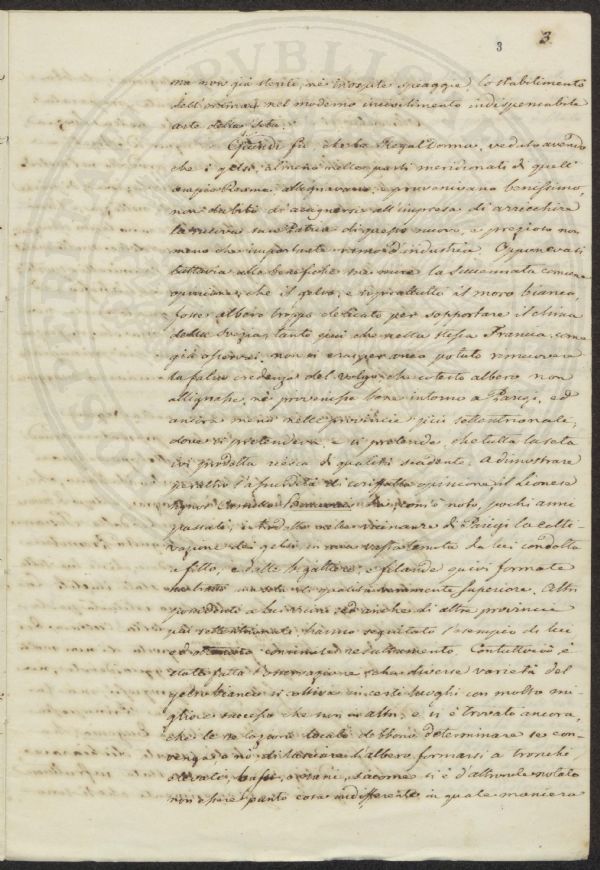 3 3
ma non già sterili, nè inospite spiaggie, lo stabilimento
dell'ormai nel moderno incivilimento indispensabile
arte della Seta.
Quindi fu, che la Regal Donna, veduto avendo
che i gelsi, almeno nelle parti meridionali di quell'
ampio Reame allignavano, e provenivano benissimo,
non dubitò di accignersi all'impresa di arricchire
la sua Patria di questo nuovo, e pregioso non
meno che importante ramo d'industria. Opponevasi
tuttavia alle benefiche sue mire la summentata comune
opinione, che il gelso, e soprattutto il moro bianco,
fosse albero troppo delicato per sopportare il clima
della Svezia, tanto più che nella stessa Francia, come
già osservai, non si era per anco potuto rimuovere
la falsa credenza del volgo che cotesto albero non
allignasse, nè provenisse bene intorno a Parigi, ed
ancora meno nelle provincie più settentrionali,
dove si pretendeva e si pretende, che tutta la seta
ivi prodotta riesca di qualità scadente. A dimostrare
peraltro l'assurdità di siffatta opinione il Lionese
Signor Camillo Beauvais ha, com'è noto, pochi anni
passati, introdotto nelle vicinanze di Parigi la colti-
vazione dei gelsi, in una vasta tenuta da lui condotta
a fitto, e dalle bigattiere, e filande quivi formate
ha tratto una seta di qualità veramente superiore. Altri
possidenti a lui vicini ed anche di altre provincie
più settentrionali, hanno seguitato l'esempio di lui
ed convincimento. Contuttociò è
stata fatta l'osservazione, che diverse varietà del
gelso bianco si coltiva in certi luoghi con molto mi-
gliore successo che non in altri, e si è trovato ancora,
che le ragioni locali debbono determinare se con-
venga o nò di lasciare l'albero formarsi a tronchi
elevati, bassi, o nani, siccome si è d'altronde notato
non essere punto cosa indifferente in quale maniera